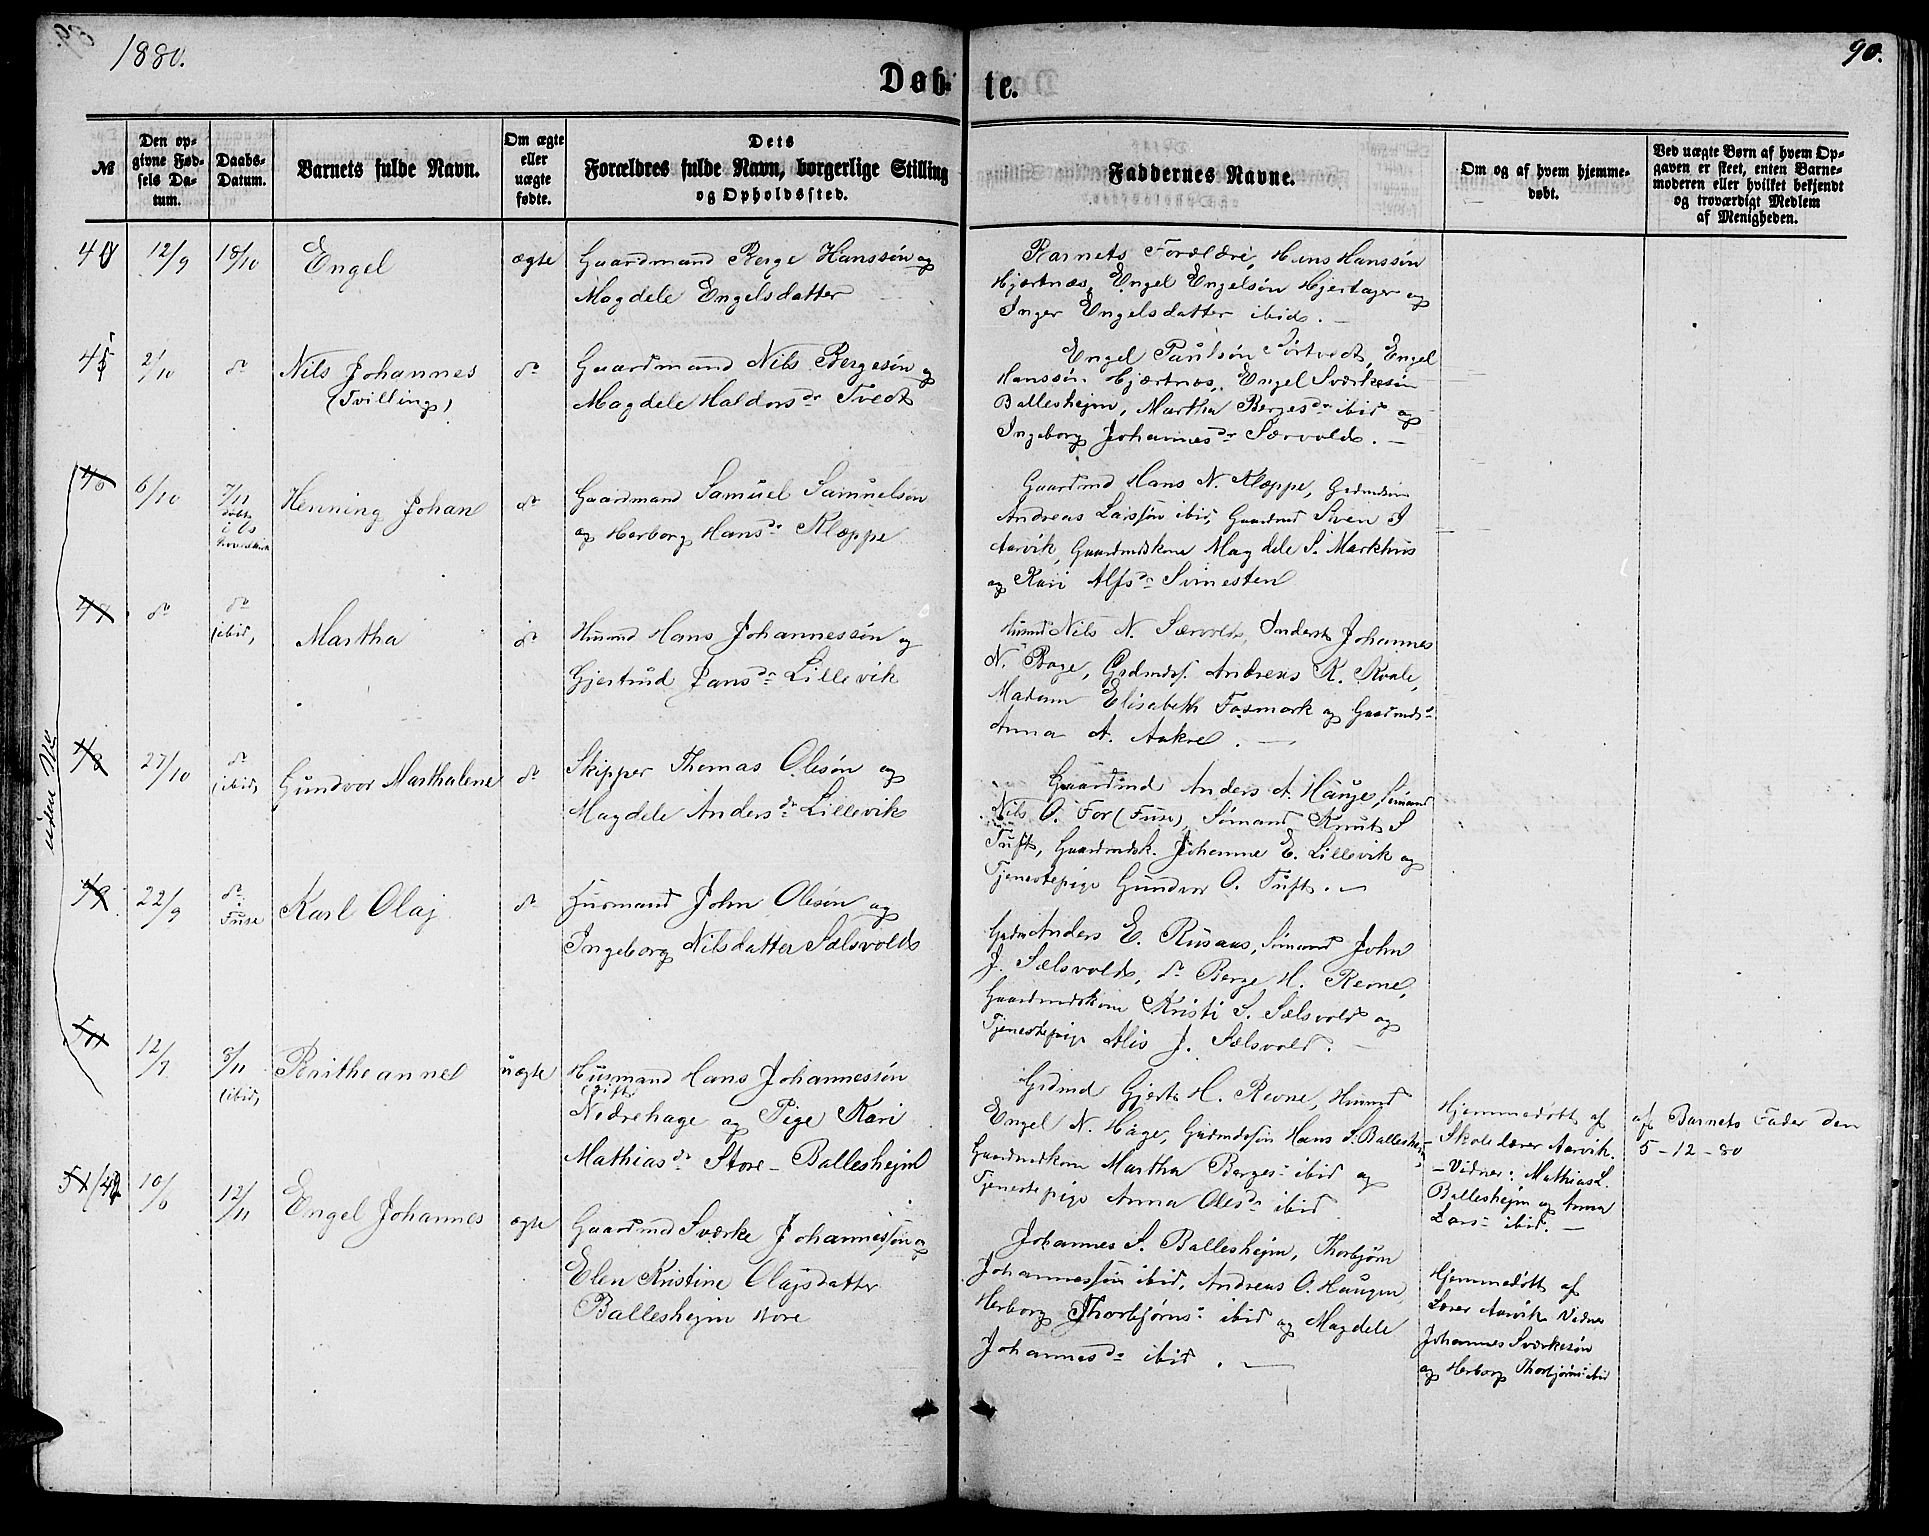 1880.
90.
Døbte.
№
Den opgivne Fødsels Datum.
Daabs-Datum.
Barnets fulde Navn.
Om ægte eller uægte fødte.
Dets Forældres fulde Navn, borgerlige Stilling og Opholdssted.
Faddernes Navne.
Om og af hvem hjemmedøbt.
Ved uægte Børn af hvem Opgaven er skeet, enten Barnemoderen eller hvilket bekjendt og troværdigt Medlem af Menigheden.
40
12/9
18/10
Engel
ægte
Gaardmand Berge Hanssøn og
Magdele Engelsdatter
Barnets Forældre, Hans Hanssøn
Hjærtnæs, Engel Engelsøn Hjertager og
Inger Engelsdatter ibid. —
2/10
do
Nils Johannes
(Tvilling)
do
Gaardmand Nils Bergesøn og
Magdele Haldorsdr Tvedt
Engel Paulsøn Tørtvedt, Engel
Hanssøn Hjærtnæs, Engel Sværkesøn
Ballesheim, Martha Bergesdr ibid og
Ingeborg Johannesdr Særvold. —
46
6/10
7/11
døbt
i
Henning Johan
do
Gaardmand Samuel Samuelsøn
og Herborg Hansdr Kleppe
Gaardmd Hans N. Kleppe, Grdmdsøn
Andreas Larssøn ibid, Gaardmd Sven J
Aarvik, Gaardmdskone Magdele S. Markhus
og Kari Alfsdr Svinesten
47
do
do
(ibid)
Martha
do
Husmd Hans Johannessøn og
Gjertrud Jansdr Lillevik
Husmd Nils N. Særvold, Inderst Johannes
N. Boge, Grdmds. Andreas K. Kvale,
Madam Elisabeth Fosmark og Gaardmds
Anna A. Aakre. —
uden No
48
27/10
do
(ibid)
Gundvor Marthalene
do
Skipper Thomas Olesøn og
Magdele Andersdr Lillevik
Gaardmd Anders A. Hauge, Sømand
Nils O. For (Fuse), Sømand Knut S
Tuft, Gaardmdsk. Johanne E. Lillevik og
Tjenestepige Gundvor O. Tuft. —
49
22/9
do
Fuse
Karl Olaj
do
Husmand John Olesøn og
Ingeborg Nilsdatter Sælsvold
Grdm Anders E. Rusaas, Sømand John
J. Sælsvold, do Berge H. Revne,
Gaardmdskone Kristi S. Sælsvold og
Tjenestepige Alis J. Sælsvold. —
50
12/9
8/11
(ibid)
Beritheanne
uægte
Husmand Hans Johannessøn
(gift)
Nedrehage og Pige Kari
Mathiasdr Store-Ballesheim
Grdmd Gjert H. Revne, Husmd
Engel N. Hage, Grdmdssøn Hans S. Ballesheim
Gaardmdkone Martha Berges ibid og
Tjenestepige Anna Olesdr ibid
Hjemmedøbt af
Skolelærer Aarvik.
– Vidner: Mathias L.
Ballesheim og Anna
Lars ibid. —
af Barnets Fader den
5-12-80
51/42
10/6
12/11
Engel Johannes
ægte
Gaardmd Sværke Johannessøn og
Elen Kristine Olajsdatter
Ballesheim store
Johannes S. Ballesheim, Thorbjørn
Johannessøn ibid, Andreas O. Haugen,
Herborg Thorbjørns ibid og Magdele
Johannesdr ibid. —
Hjemmedøbt af
Lærer Aarvik Vidner
Johannes Sværkesøn
og Herborg Thorbjørns ibid